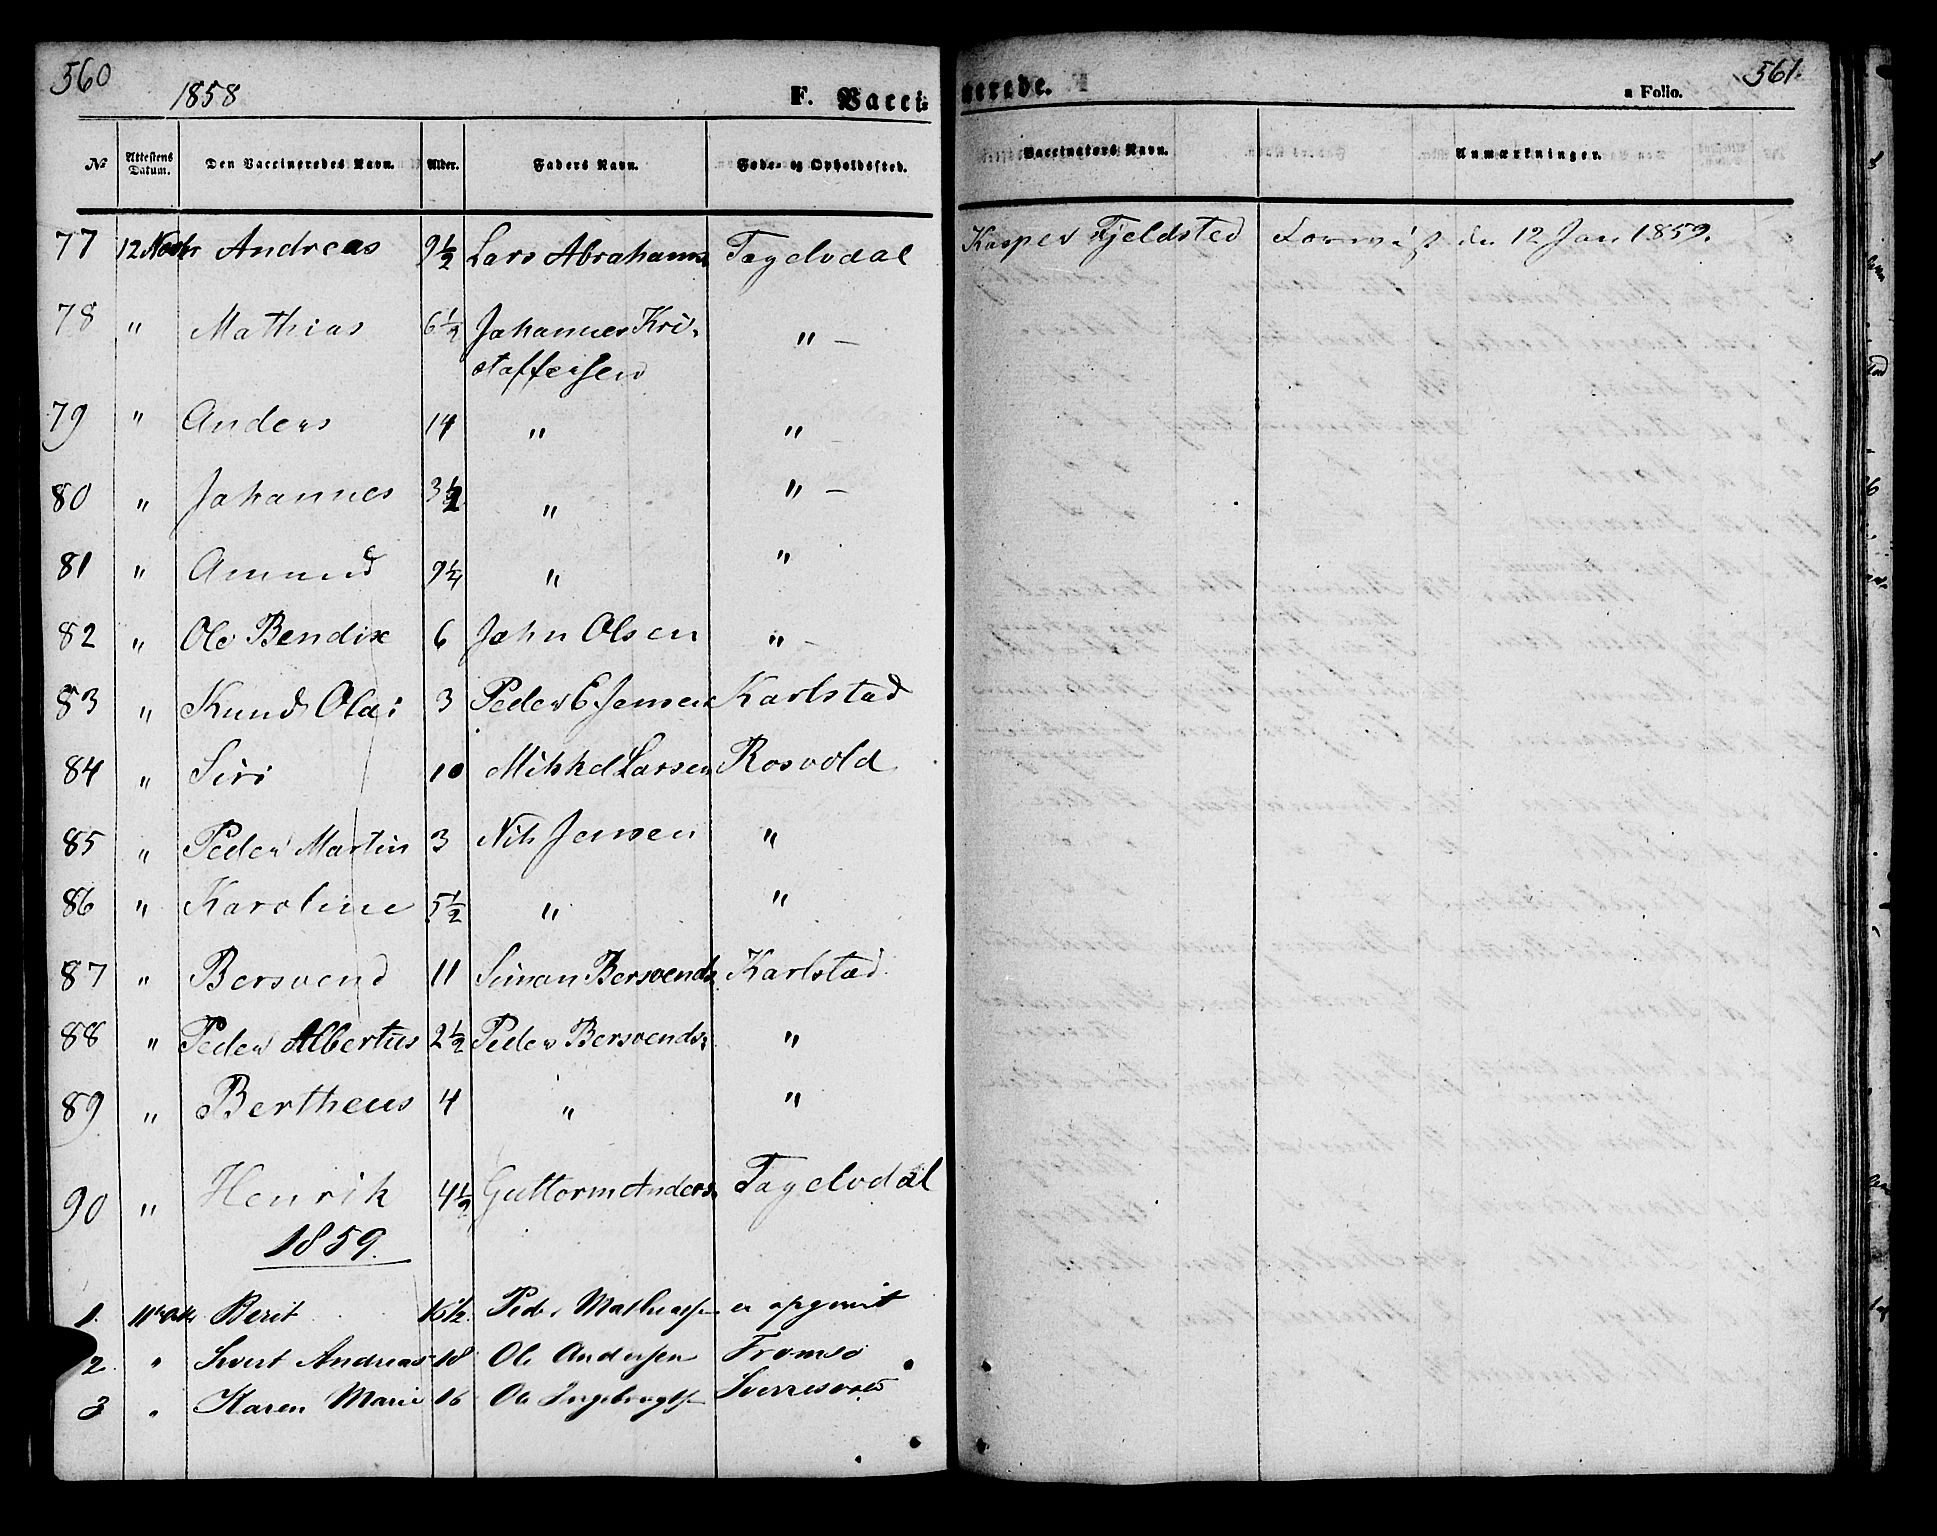 560
1858
F. Vacci-
nerede.
a Folio.
561.
№ Attestens Datum. Den Vaccineredes Navn. Alder. Faders Navn. Føde- og Opholdssted. Vaccinators Navn. Anmærkninger.
77 12 Novbr Andreas 9½ Lars Abrahams. Tagelvdal Kasper Fjeldsted den 12 Jan 1859.
78 " Mathias 6½ Johannes Kri-
stoffersen " –
79 " Anders 14 " "
80 " Johannes 3½ " " –
81 " Amund 9¼ " "
82 " Ole Bendix 6 John Olsen " –
83 " Knud Olai 3 Peder E Jensen Karlstad
84 " Siri 10 Mikkel Larsen Rosvold
85 " Peder Martin 3 Nils Jensen "
86 " Karoline 5½ " "
87 " Bersvend 11 Simon Bersvends. Karlstad
88 " Peder Albertus 2½ Peder Bersvends. "
89 " Bertheus 4 " "
90 " Henrik 4½ Guttorm Anders. Tagelvdal
1859.
1. Berit 15½ Peder Mathiassen
2 " Sivert Andreas 18 Ole Andersen Tromsø
3 " Karen Marie 16 Ole Ingebrigtsen